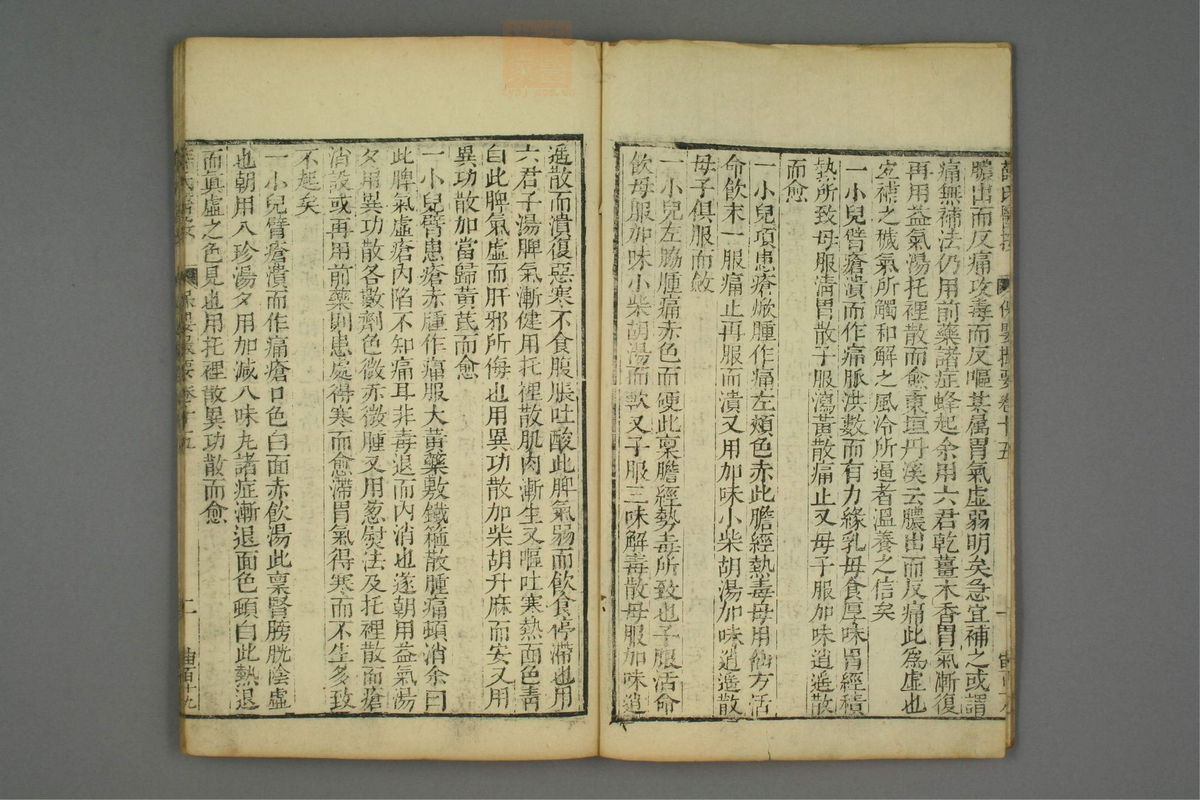 薛氏醫按 保嬰撮要卷十五 一
膿出而反痛攻毒而反嘔其屬胃氣虛弱明矣急宜補之或謂
痛無補法仍用前藥諸症蜂起余用六君乾薑木香胃氣漸復
再用益氣湯托裡散而愈東垣丹溪云膿出而反痛此為虛也
宜補之穢氣所觸和解之風冷所逼者溫養之信矣
一小兒臂瘡潰而作痛脈洪數而有力緣乳母食厚味胃經積
熱所致母服清胃散子服瀉黃散痛止又母子服加味逍遙散
而愈
一小兒項患瘡焮腫作痛左頰色赤此膽經熱毒母用仙方活
命飲末一服痛止再服而潰又用加味小柴胡湯加味逍遙散
母子俱服而斂
一小兒左脇腫痛赤色而硬此稟膽經熱毒所致也子服活命
飲母服加味小柴胡湯而㰸又子服三味解毒散母服加味逍
遙散而潰復惡寒不食腹脹吐酸此脾氣弱而飲食停滯也用
六君子湯脾氣漸健用托裡散肌肉漸生又嘔吐寒熱面色靑
白此脾氣虛而肝邪所侮也用異功散加柴胡升麻而安又用
異功散加當歸黃芪而愈
一小兒臂患瘡赤腫作痛服大黃藥敷鐵箍散腫痛頓消余曰
此脾氣虛瘡內陷不知痛耳非毒退而內消也遂朝用益氣湯
夕用異功散各數劑色微赤微腫又用葱熨法及托裡散而瘡
消設或再用前藥則患處得寒而愈滯胃氣得寒而不生多致
不起矣
一小兒臂瘡潰而作痛瘡口色白面赤飲湯此稟腎膀胱陰虛
也朝用八珍湯夕用加減八味丸諸症漸退面色頓白此熱退
而眞虛之色見也用托裡散異功散而愈
薛氏醫按 保嬰撮要卷十五 二 百十九